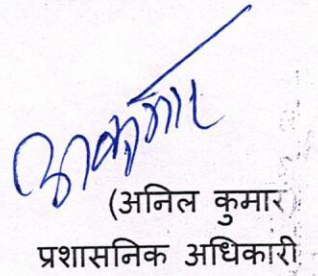 (अनिल कुमार)
प्रशासनिक अधिकारी